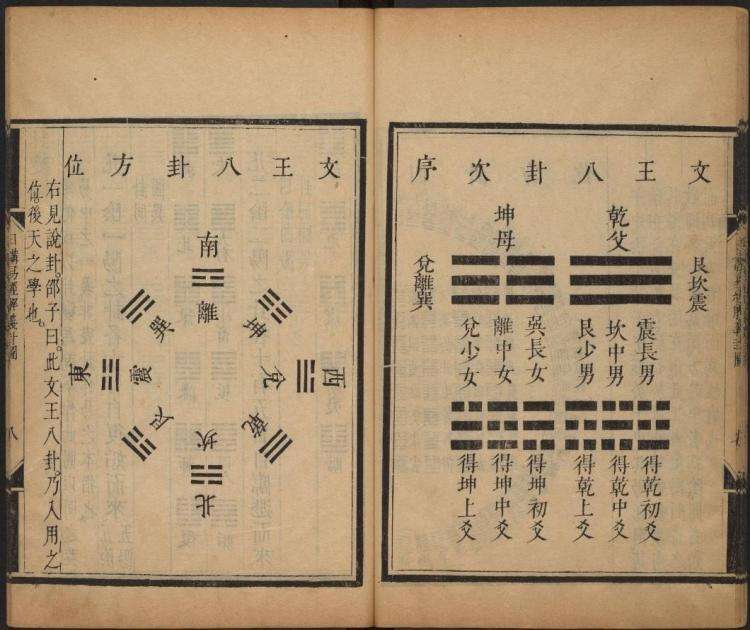 文王八卦次序
艮坎震
乾父
坤母
兌離巽
震長男
坎中男
艮少男
巽長女
離中女
兌少女
得乾初爻
得乾中爻
得乾上爻
得坤初爻
得坤中爻
得坤上爻
文王八卦方位
南
離
坤
兌
西
乾
坎
北
艮
震
東
巽
右見說卦。邵子曰。此文王八卦。乃入用之
位。後天之學也。
日講易經解義
八